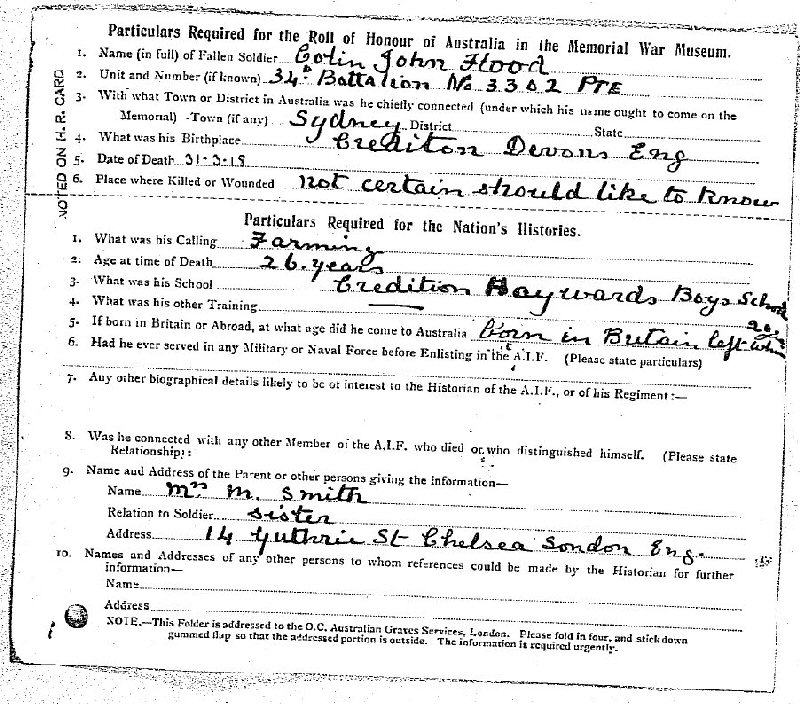 Particulars Required for the Roll of Honour of Australia in the Memorial War Museum.
1. Name (in full) of Fallen Soldier Colin John Flood
2. Unit and Number (if known) 34th Battalion No 3302 PTE
3. With what Town or District in Australia was he chiefly connected (under which his name ought to come on the
Memorial) -Town (if any) Sydney District State
4. What was his Birthplace Crediton Devons Eng
5. Date of Death 31-3-18
6. Place where Killed or Wounded not certain should like to know
NOTED ON H.R. CARD
Particulars Required for the Nation's Histories.
1. What was his Calling Farming
2. Age at time of Death 26 years
3. What was his School Credition Haywards Boys School
4. What was his other Training
5. If born in Britain or Abroad, at what age did he come to Australia born in Britain left when 20
6. Had he ever served in any Military or Naval Force before Enlisting in the A.I.F. (Please state particulars)
7. Any other biographical details likely to be of interest to the Historian of the A.I.F., or of his Regiment:—
8. Was he connected with any other Member of the A.I.F. who died or who distinguished himself. (Please state
Relationship):
9. Name and Address of the Parent or other persons giving the information—
Name Mrs M. Smith
Relation to Soldier sister
Address 14 Guthrie St Chelsea London Eng.
10. Names and Addresses of any other persons to whom references could be made by the Historian for further
information—
Name
Address
NOTE.—This Folder is addressed to the O.C. Australian Graves Services, London. Please fold in four, and stick down
gummed flap so that the addressed portion is outside. The information is required urgently.